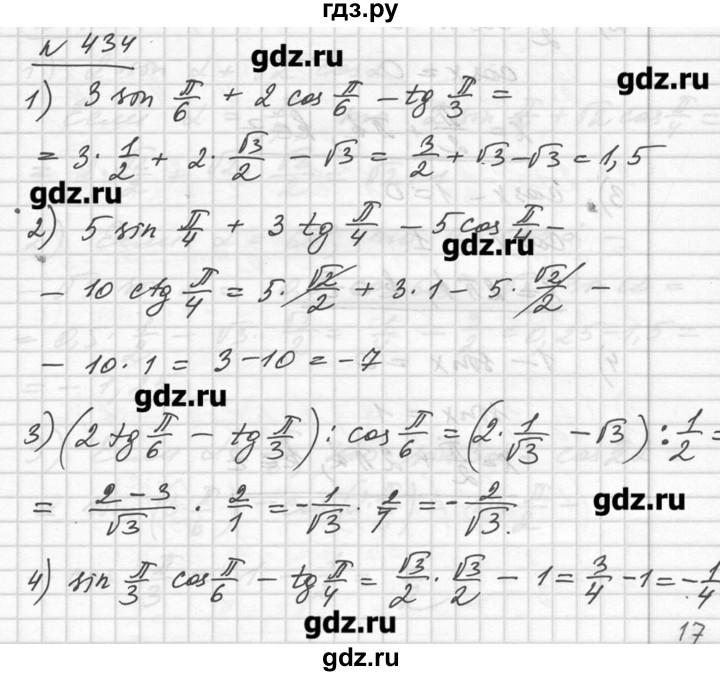 гдз.ру
N 434
gdz.ru
gdz.ru
1) 3 sin π/6 + 2 cos π/6 - tg π/3 =
= 3·1/2 + 2·√3/2 - √3 = 3/2 + √3 - √3 = 1,5
gdz.ru
2) 5 sin π/4 + 3 tg π/4 - 5 cos π/4 -
gdz.ru
- 10 ctg π/4 = 5·√2/2 + 3·1 - 5·√2/2 -
- 10·1 = 3 - 10 = -7
gdz.ru
3) (2 tg π/6 - tg π/3) : cos π/6 = (2·1/√3 - √3) : 1/2 =
gdz.ru
= (2-3)/√3 · 2/1 = -1/√3 · 2/1 = -2/√3.
4) sin π/3 cos π/6 - tg π/4 = √3/2 · √3/2 - 1 = 3/4 - 1 = -1/4
gdz.ru
17
gdz.ru